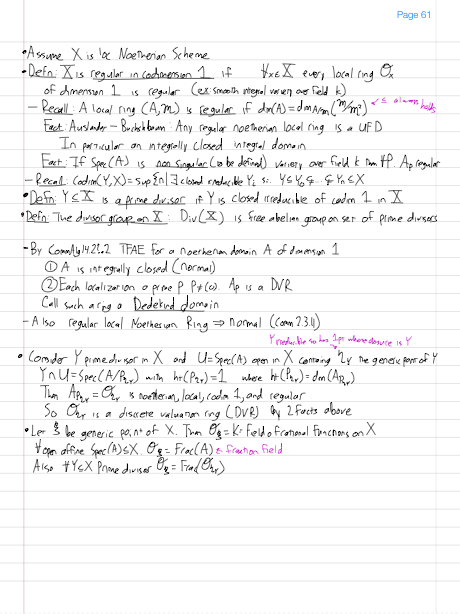 Page 61
• Assume X is loc Noetherian Scheme
• Defn: X is regular in codimension 1 if ∀x∈X every local ring O_x
of dimension 1 is regular (ex: smooth integral variety over field k)
– Recall: A local ring (A,m) is regular if dim(A) = dim_{A/m}(m/m²) ≤ always holds
Fact: Auslander – Buchsbaum: Any regular noetherian local ring is a UFD
In particular an integrally closed integral domain
Fact: If Spec(A) is non singular (to be defined) variety over field k then ∀P. A_P regular
– Recall: Codim(Y,X) = sup{n | ∃ closed irreducible Y_i s.t. Y ≤ Y_0 ⊊ … ⊊ Y_n ≤ X
• Defn: Y ≤ X is a prime divisor if Y is closed irreducible of codim 1 in X
• Defn: The divisor group on X: Div(X) is free abelian group on set of prime divisors
– By CommAlg 14.2.2 TFAE for a noetherian domain A of dimension 1
① A is integrally closed (normal)
② Each localization a prime P P≠(0). A_P is a DVR
Call such a ring a Dedekind domain
– Also regular local Noetherian Ring ⇒ normal (Comm 2.3.11)
Y irreducible so has 1 pt whose closure is Y
• Consider Y prime divisor in X and U = Spec(A) open in X containing η_Y the generic point of Y
Y∩U = Spec(A/P_{η_Y}) with ht(P_{η_Y}) = 1 where ht(P_{η_Y}) = dim(A_{P_{η_Y}})
Then A_{P_{η_Y}} = O_{η_Y} is noetherian, local, codim 1, and regular
So O_{η_Y} is a discrete valuation ring (DVR) By 2 facts above
• Let ξ be generic point of X. Then O_ξ = K = Field of rational functions on X
∀ open affine Spec(A) ≤ X. O_ξ = Frac(A) ← fraction field
Also ∀Y≤X Prime divisor O_ξ = Frac(O_{η_Y})